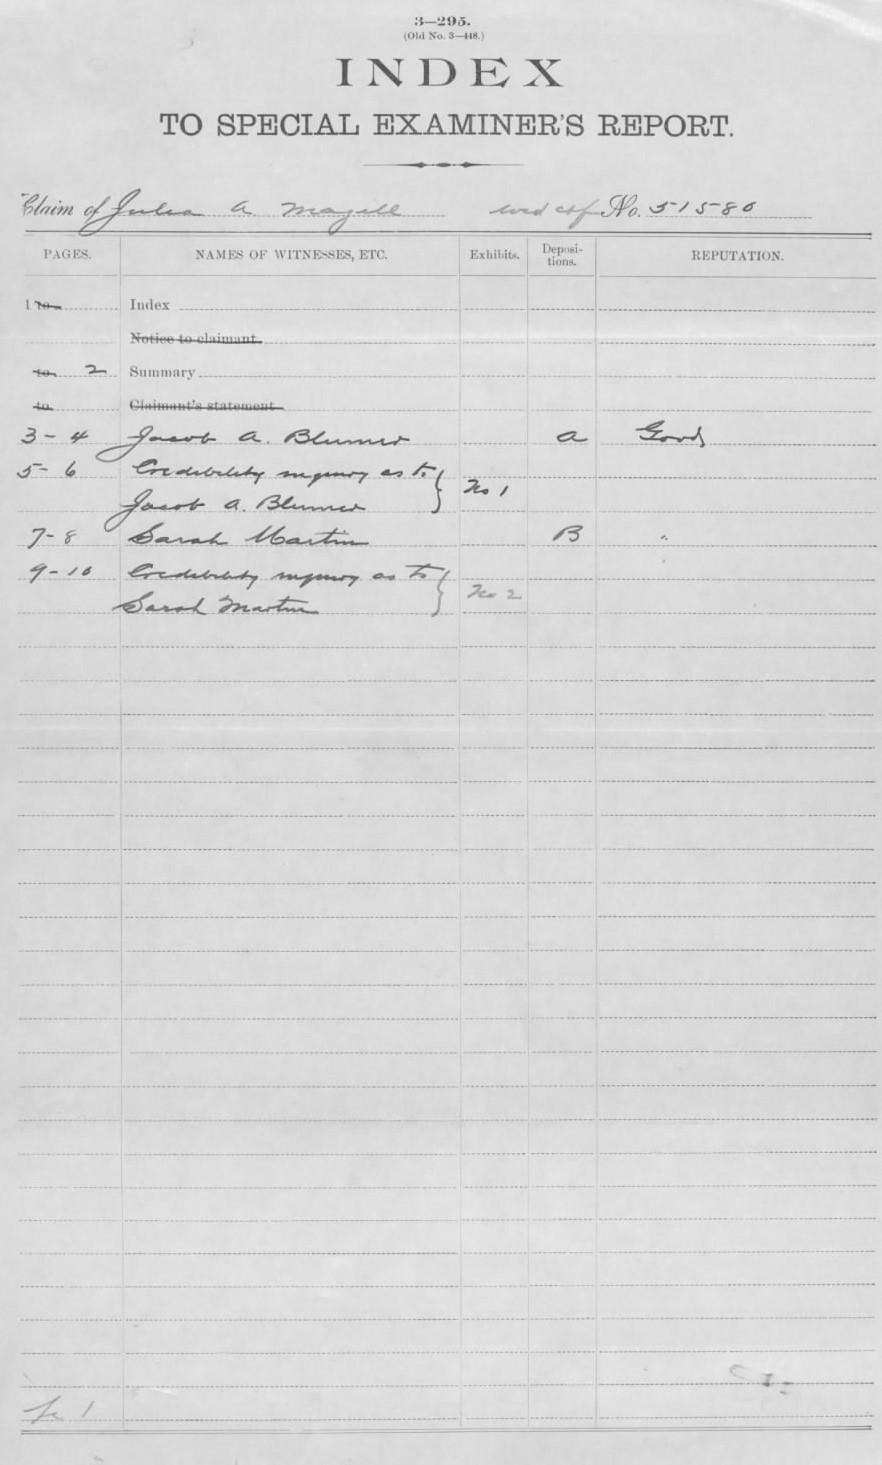 3—295.
(Old No. 3—448.)
INDEX
TO SPECIAL EXAMINER'S REPORT.
Claim of Julia A Magill wid ctf No. 515 80
PAGES. NAMES OF WITNESSES, ETC. Exhibits. Deposi-tions. REPUTATION.
1 to Index
Notice to claimant
to 2 Summary
to Claimant's statement
3-4 Jacob A. Blumer A Good
5-6 Credibility inquiry as to
Jacob A. Blumer No 1
7-8 Sarah Martin B "
9-10 Credibility inquiry as to
Sarah Martin No 2